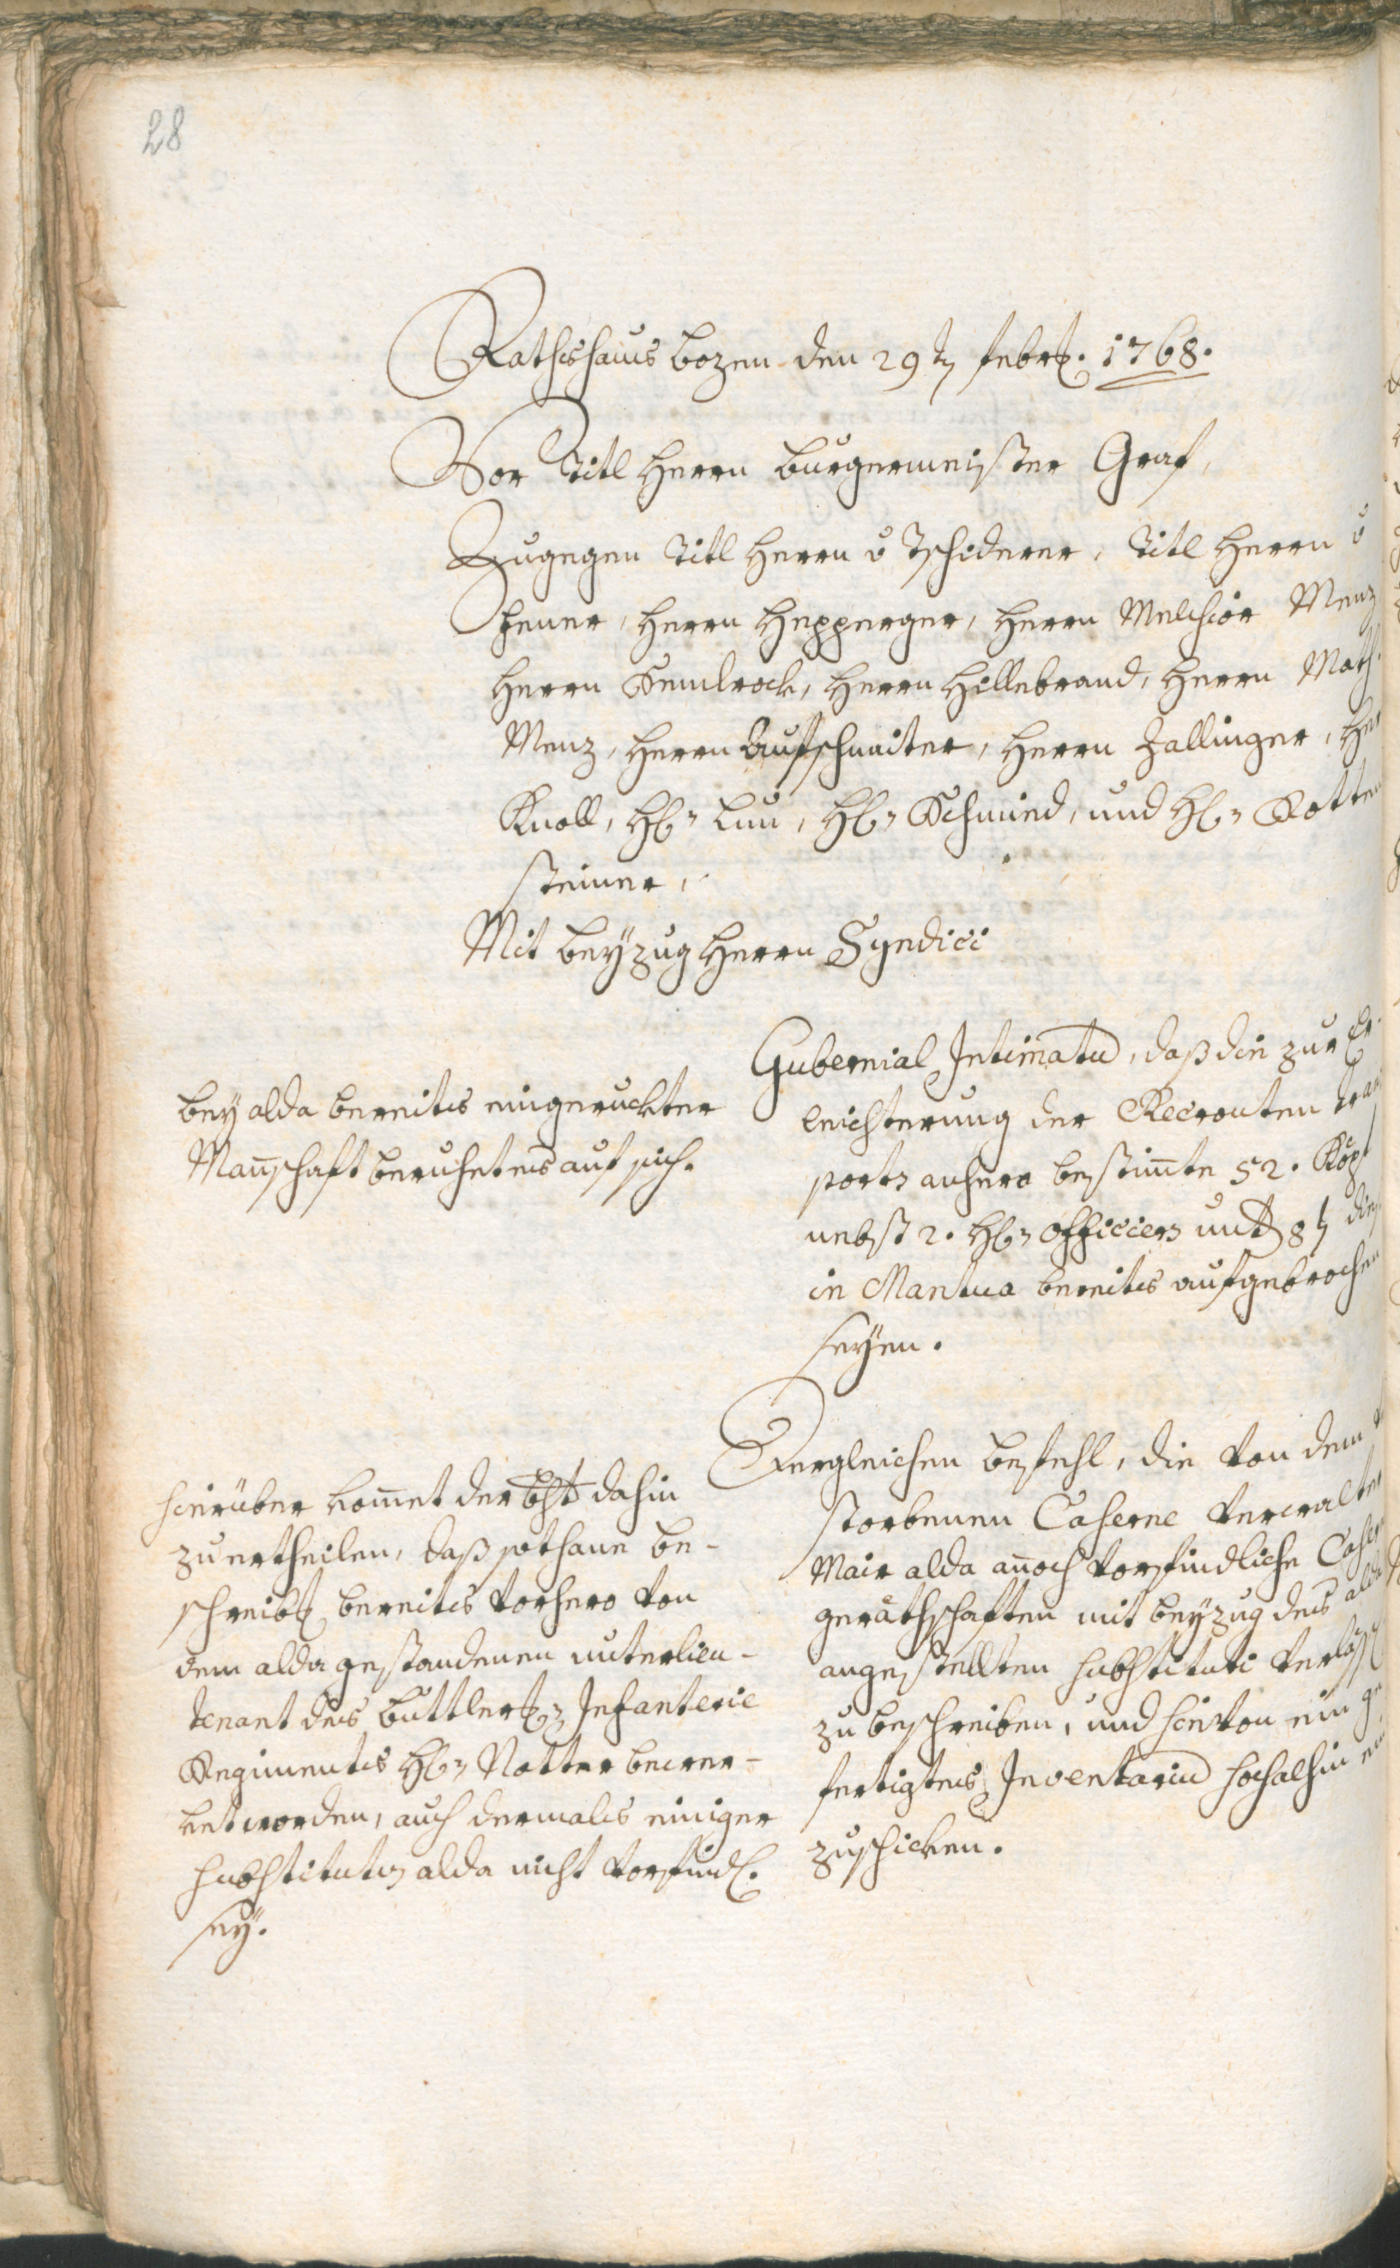 28
Rathshaus Bozen den 29ten Febr. 1768.
Vor Titl Herrn Burgermeister Graf,
Zugegen Titl Herrn v Tschiderer, Titl Herrn v
Zeuer, Herrn Hepperger, Herrn Melchior Menz
Herrn Kemlrock, Herrn Hillebrand, Herrn Math.
Menz, Herrn Aufschnaiter, Herrn Zallinger, Her
Knoll, H. Luu, H. Schmid, und H. Rotten
steiner,
Mit beyzug Herrn Syndici
Gubernial Intimatu, daß die zur Er
leichterung der Recrouten tran
ports anhero bestimte 52. Köpf
nebst 2. H. Officiers unt 8t dies
in Mantua bereits aufgebrochen
seyen.
bey alda bereits eingeruckter
Manschaft beruhet es auf sich.
Dergleichen Befehl, die von dem
storbenen Caserne Verwalter
Mair alda annoch vorfindliche Caser
geräthschaften mit beyzug des alda
angestellten substituti verläss
zu beschreiben, und hievon ein ge
fertigtes Inventariu hochalhin ein
zuschicken.
hierüber komet der Bht dahin
zu ertheilen, daß sothane be-
schreib bereits vorhero von
dem alda gestandenen unterlieu-
tenant des Buttler Infanterie
Regiments H. Notter bewer-
ket worden, auch dermals einiger
substitutus alda nicht vorfindl.
sey.